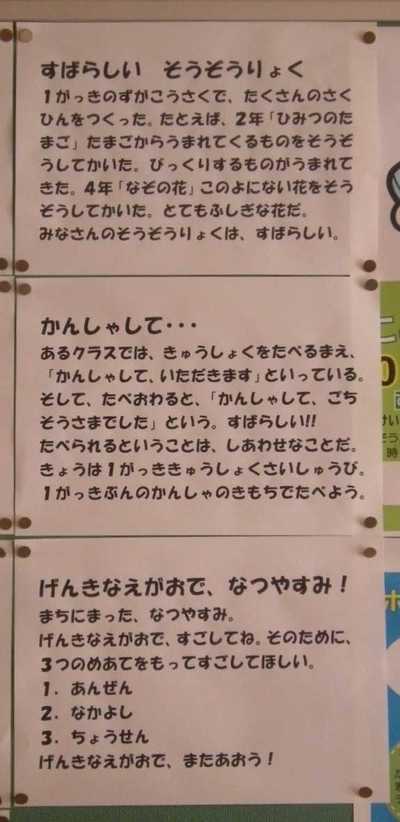 すばらしい　そうぞうりょく
1がっきのずがこうさくで、たくさんのさく
ひんをつくった。たとえば、2年「ひみつのた
まご」たまごからうまれてくるものをそうぞ
うしてかいた。びっくりするものがうまれて
きた。4年「なぞの花」このよにない花をそう
ぞうしてかいた。とてもふしぎな花だ。
みなさんのそうぞうりょくは、すばらしい。
かんしゃして・・・
あるクラスでは、きゅうしょくをたべるまえ、
「かんしゃして、いただきます」といっている。
そして、たべおわると、「かんしゃして、ごち
そうさまでした」という。すばらしい!!
たべられるということは、しあわせなことだ。
きょうは1がっききゅうしょくさいしゅうび。
1がっきぶんのかんしゃのきもちでたべよう。
げんきなえがおで、なつやすみ！
まちにまった、なつやすみ。
げんきなえがおで、すごしてね。そのために、
3つのめあてをもってすごしてほしい。
1．あんぜん
2．なかよし
3．ちょうせん
げんきなえがおで、またあおう！